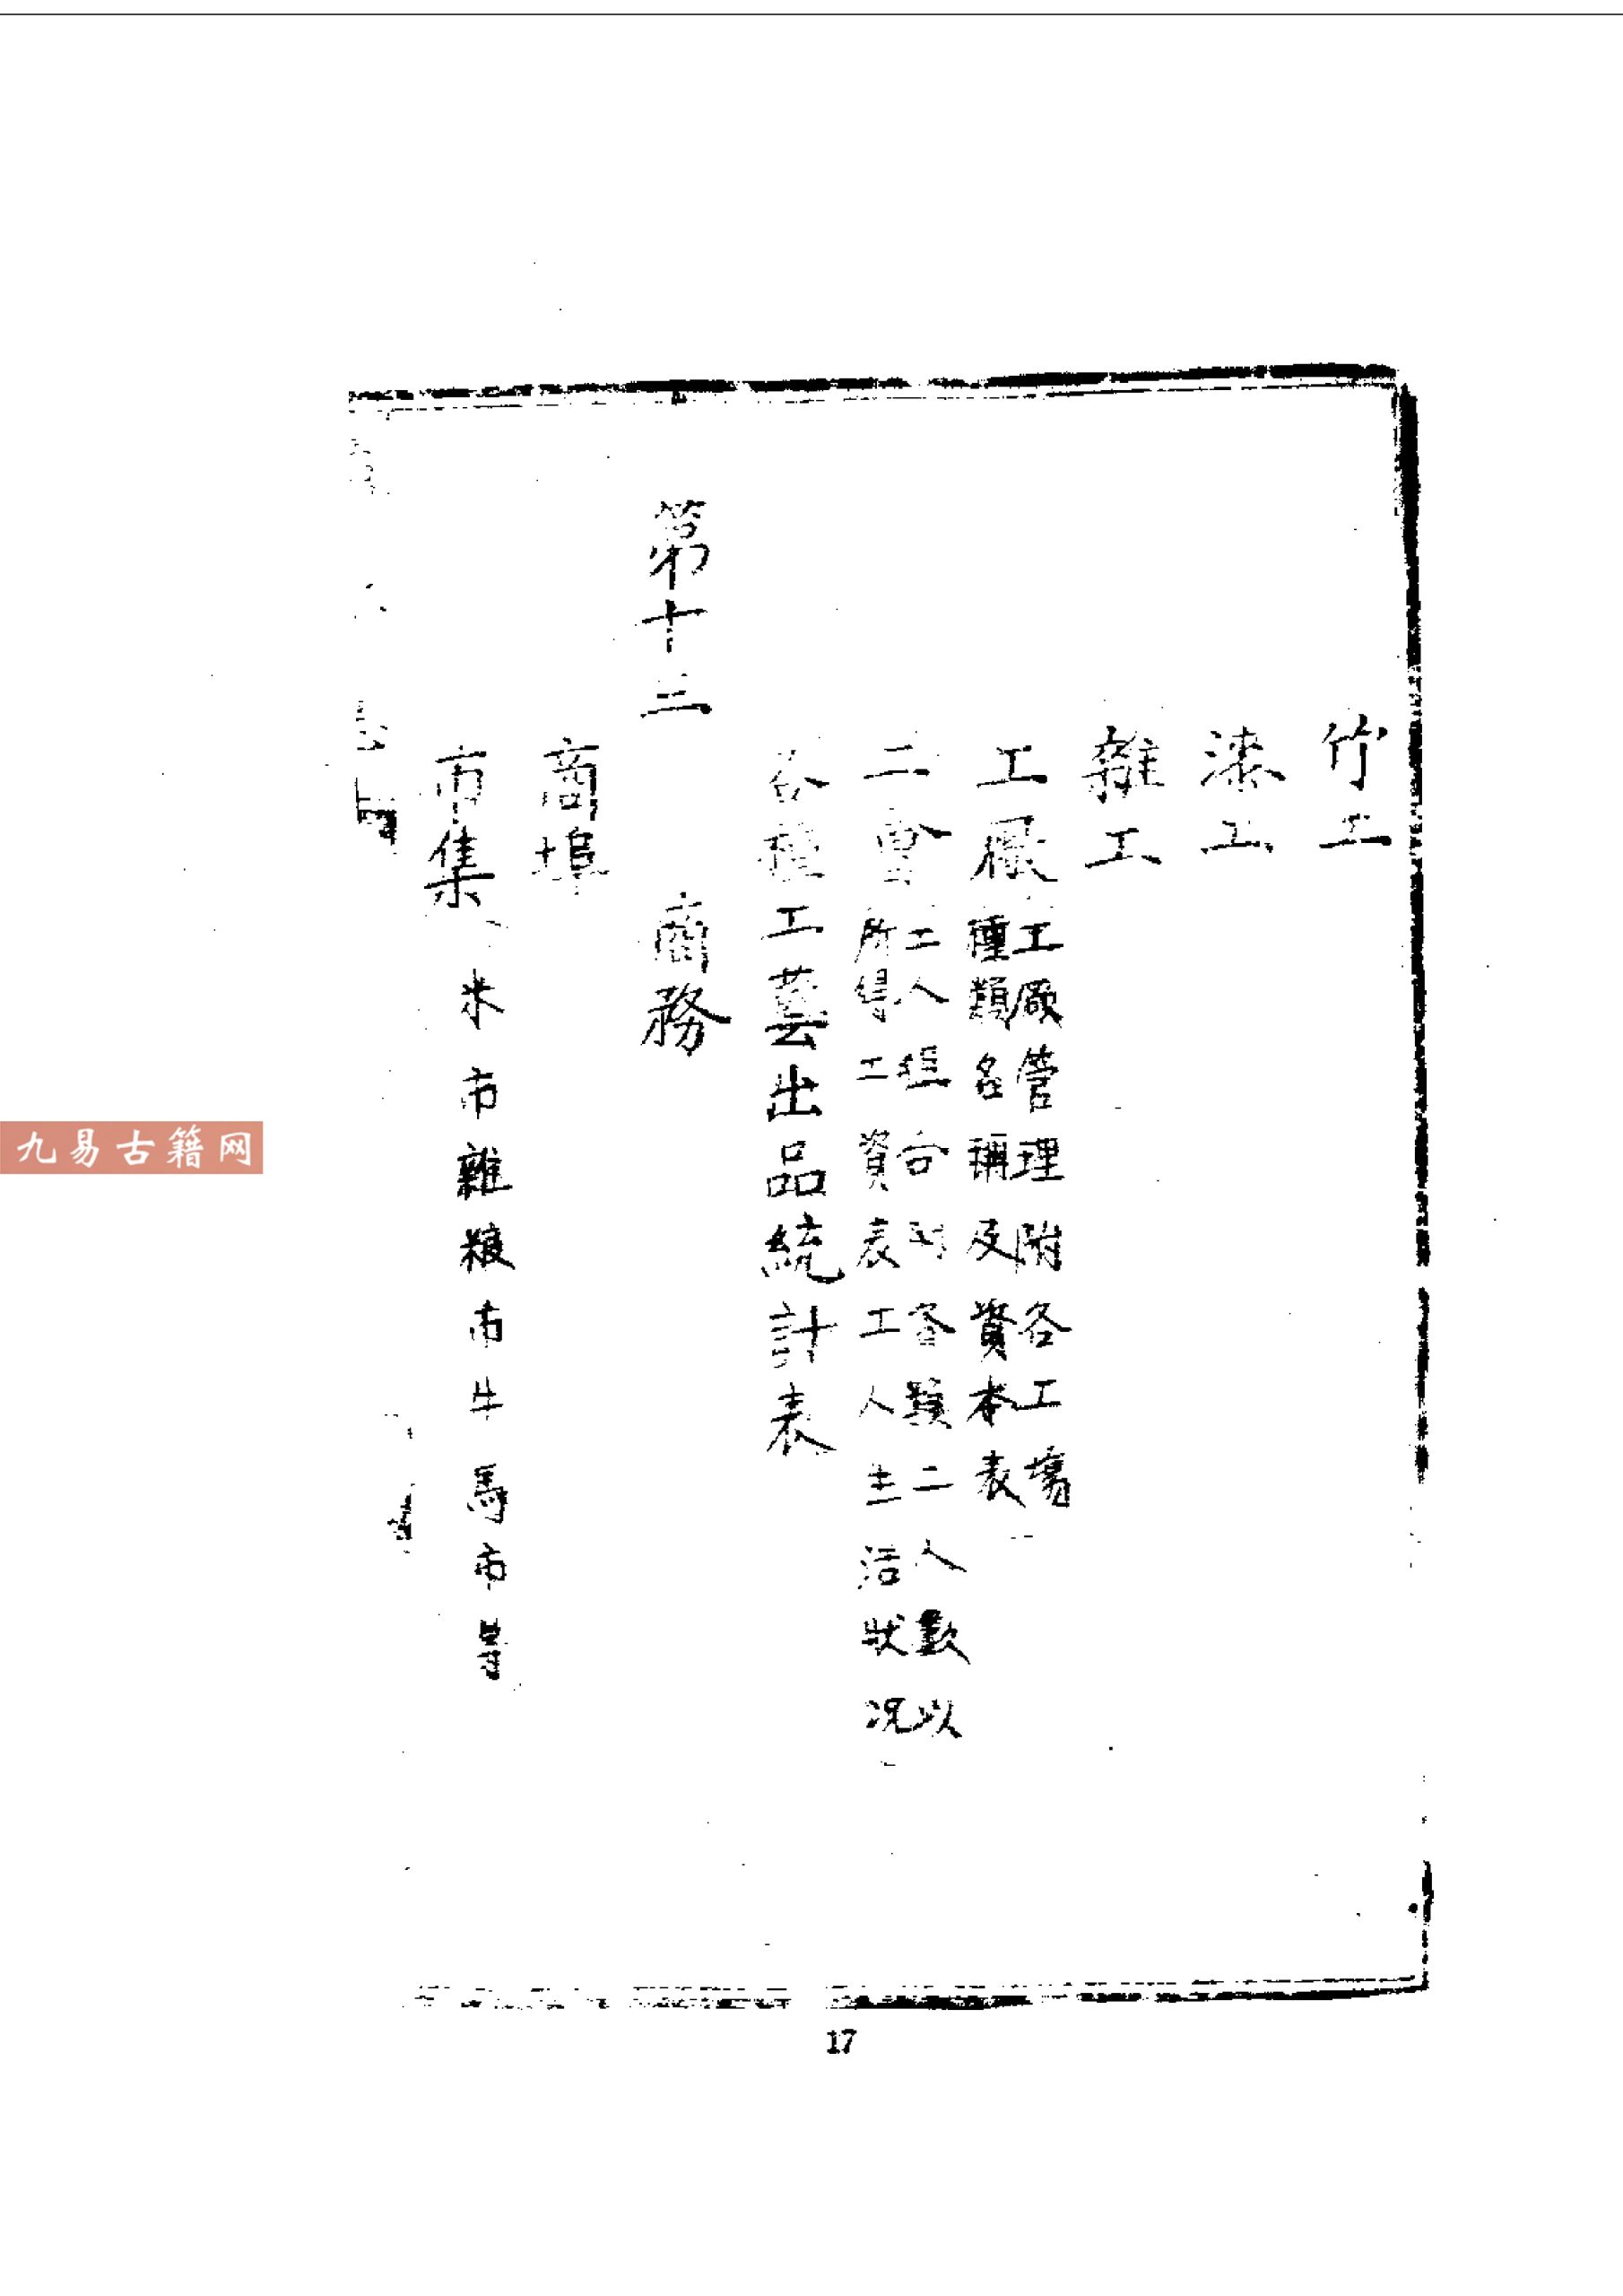 竹工
漆工
雜工
工廠 工廠管理附各工塲
種類名稱及資本表
工會 工人組合附各類工人數以
所得工資表工人生活狀况
各種工藝出品統計表
第十三 商務
商埠
市集 米市雜粮市牛馬市等
九易古籍网
17